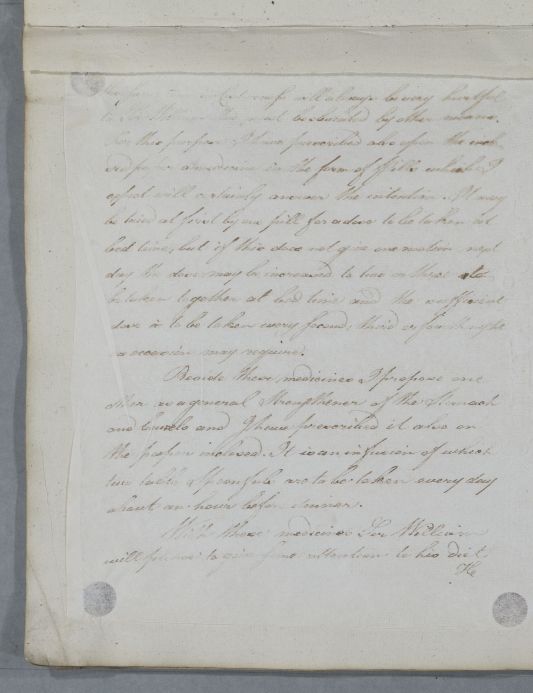 will always be very hurtful
to Sir William must be avoided by other means.
For this purpose I have prescribed also upon the incl
osed paper a medicine in the form of Pills which I
expect will certainly answer the intention. It may
be tried at first by one pill for a dose to be taken at
bed time, but if this does not give one motion next
day the dose may be increased to two or three to
be taken together at bed time and the sufficient
dose is to be taken every second, third or fourth night
as occasion may require.
Beside these medicines I propose one
other as a general Strengthener of the Stomach
and bowels and I have prescribed it also on
the paper inclosed. It is an infusion of which
two table Spoonfuls are to be taken every day
about an hour before dinner.
With these medicines Sir William
will please to give some attention to his diet.
He